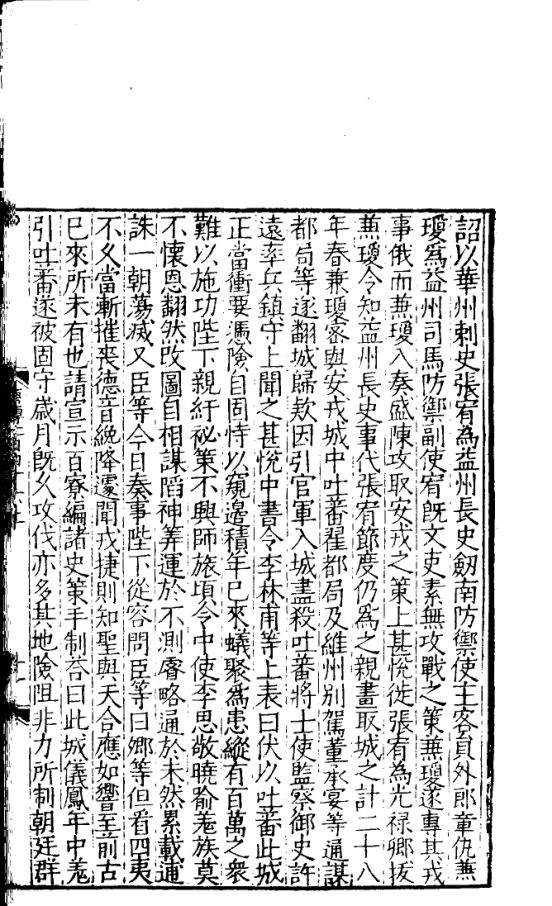 詔以華州刺史張宥為益州長史劒南防禦使主客員外郎章仇蒹
瓊為益州司馬防禦副使宥既文吏素無攻戰之策蒹瓊遂專其戎
事俄而蒹瓊入奏盛陳攻取安戎之策上甚悅徙張宥為光禄卿拔
蒹瓊令知益州長史事代張宥節度仍為之親畫取城之計二十八
年春兼瓊密與安戎城中吐蕃翟都局及維州別駕董承宴等通謀
都局等遂翻城歸欵因引官軍入城盡殺吐蕃將士使監察御史許
遠率兵鎮守上聞之甚悅中書令李林甫等上表曰伏以吐蕃此城
正當衝要憑險自固恃以窺邊積年已來蟻聚為患縱有百萬之衆
難以施功陛下親紆祕策不興師旅頃令中使李思敬曉喻羌族莫
不懷恩翻然改圖自相謀陷神筭運於不測睿略通於未然累載逋
誅一朝蕩滅又臣等今日奏事陛下從容問臣等曰卿等但看四夷
不久當漸摧喪德音纔降遽聞戎捷則知聖與天合應如響至前古
已來所未有也請宣示百寮編諸史策手制荅曰此城儀鳳年中羌
引吐蕃遂被固守歲月既久攻伐亦多其地險阻非力所制朝廷群